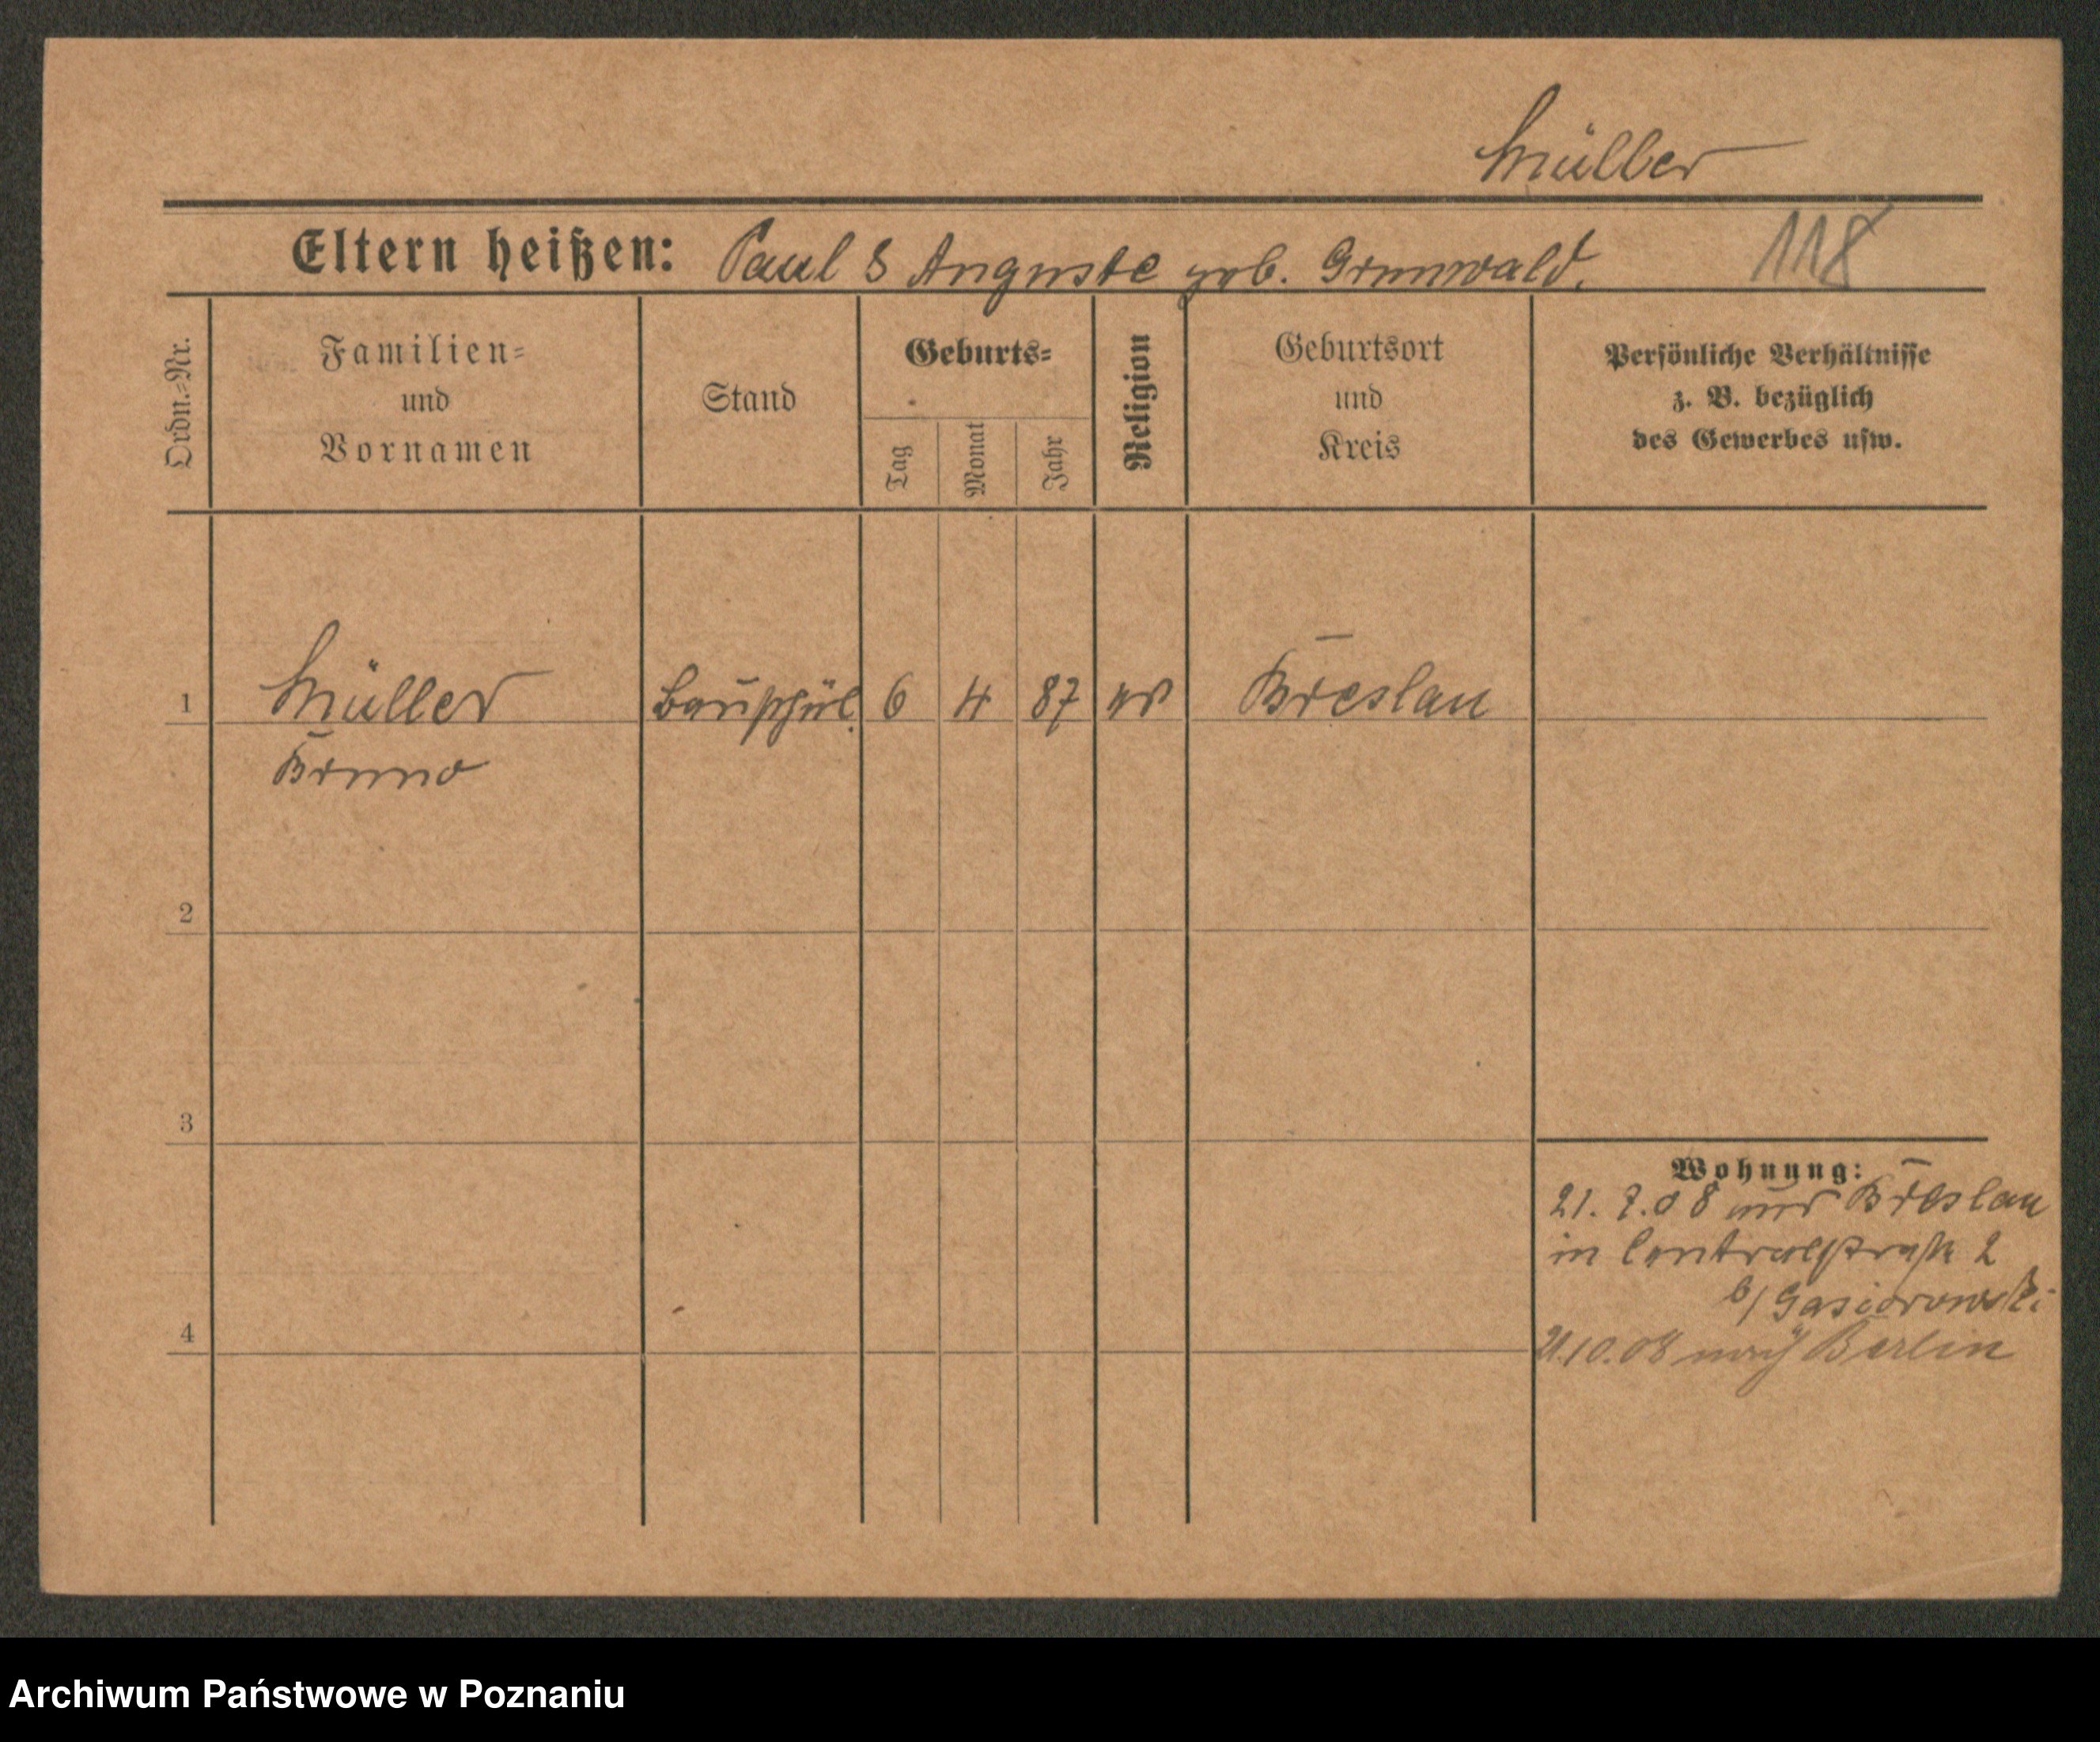 Müller
Eltern heißen: Paul & Auguste geb. Grunwald.
118
Ordn.-Nr.
Familien-
und
Vornamen
Stand
Geburts-
Tag
Monat
Jahr
Religion
Geburtsort
und
Kreis
Persönliche Verhältnisse
z. B. bezüglich
des Gewerbes usw.
1 Müller Bauschül. 6 4 87 ev Breslau
Bruno
2
3
4
Wohnung:
21. 7. 08 aus Breslau
in Centralstraße 2
b/ Gasiorowski
21.10.08 nach Berlin
Archiwum Państwowe w Poznaniu